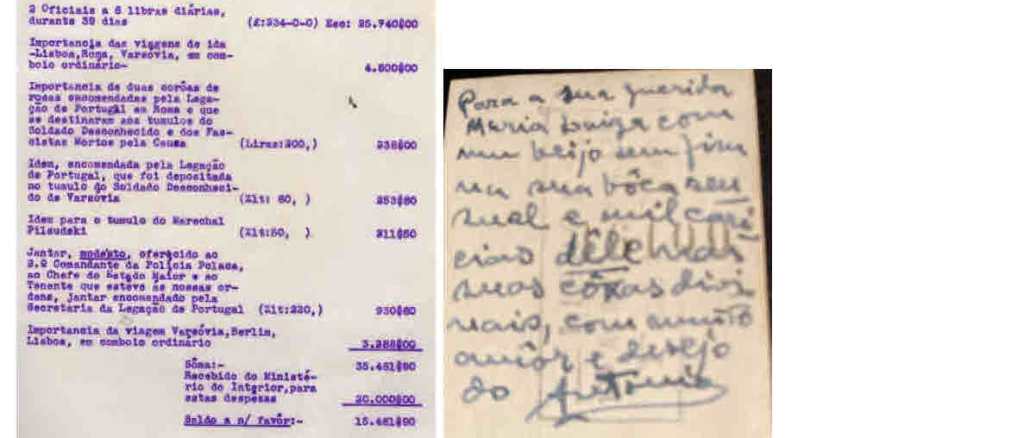 2 Oficiais a 6 libras diárias,
durante 39 dias (£:234-0-0) Esc: 25.740$00
Importancia das viagens de ida
-Lisboa,Roma, Varsóvia, em com-
boio ordinário- 4.800$00
Importancia de duas corôas de
rosas encomendadas pela Lega-
ção de Portugal em Roma e que
se destinaram aos tumulos do
Soldado Desconhecido e dos Fas-
cistas Mortos pela Causa (Liras:200,) 238$00
Idem, encomendada pela Legação
de Portugal, que foi depositada
no tumulo do Soldado Desconheci-
do de Varsóvia (Zlt: 60, ) 253$80
Idem para o tumulo do Marechal
Pilsudski (Zlt:50, ) 211$50
Jantar, modesto, oferecido ao
2.º Comandante da Policia Polaca,
ao Chefe do Estado Maior e ao
Tenente que esteve ás nossas or-
dens, jantar encomendado pela
Secretaria da Legação de Portugal (Zlt:220,) 930$60
Importancia da viagem Varsóvia,Berlim,
Lisboa, em comboio ordinário 3.288$00
Sôma:- 35.461$90
Recebido do Ministé-
rio do Interior,para
estas despesas 20.000$00
Saldo a n/ favôr:- 15.461$90
Para a sua querida
Maria Luiza com
um beijo sem fim
na sua bôca sen
sual e mil cari
cias
suas côxas divi
nais, com muito
amôr e desejo
do Antonio